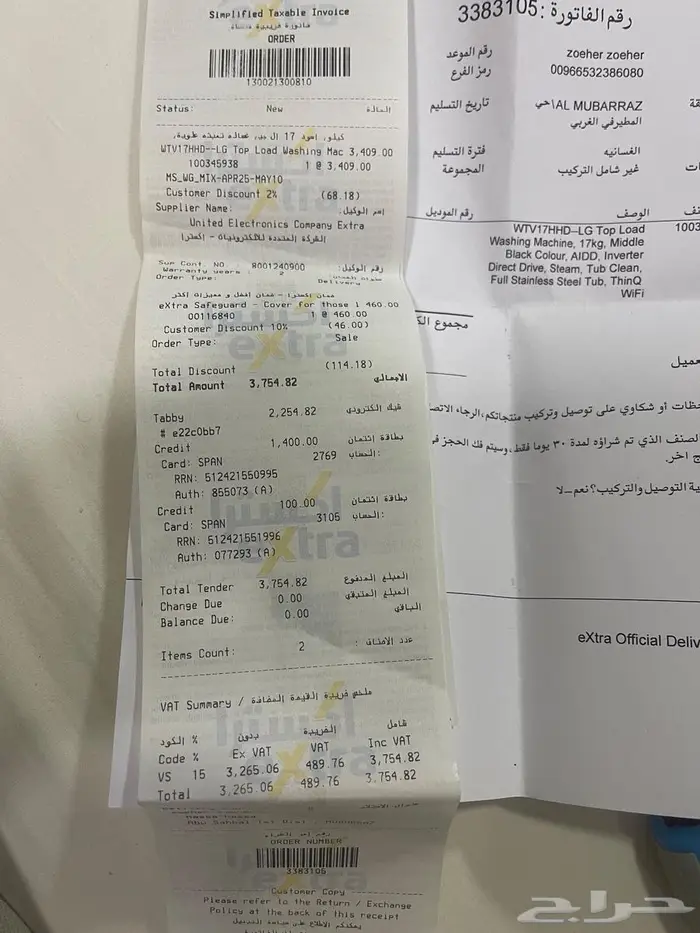 Simplified Taxable Invoice
فاتورة ضريبية مبسطة
ORDER
130021300810
Status: New الحالة
كيلو، اسود 17 ال جي، غسالة تعبئة علوية،
WTV17HHD--LG Top Load Washing Mac 3,409.00
100345938 1 @ 3,409.00
MS_WG_MIX-APR25-MAY10
Customer Discount 2% (68.18)
Supplier Name: اسم الوكيل:
United Electronics Company Extra
الشركة المتحدة للالكترونيات - إكسترا
Sup Cont. NO. : 8001240900 رقم الوكيل:
Warranty years : 2
Order Type: Delivery
ضمان إكسترا - ضمان افضل و مميزات أكثر
eXtra Safeguard - Cover for those 1 460.00
00116840 1 @ 460.00
Customer Discount 10% (46.00)
Order Type: Sale
Total Discount (114.18)
Total Amount 3,754.82 الاجمالي
Tabby 2,254.82 شيك إلكتروني
# e22c0bb7
Credit 1,400.00 بطاقة إئتمان
Card: SPAN 2769 الحساب:
RRN: 512421550995
Auth: 855073 (A)
Credit 100.00 بطاقة إئتمان
Card: SPAN 3105 الحساب:
RRN: 512421551996
Auth: 077293 (A)
Total Tender 3,754.82 المبلغ المدفوع
Change Due 0.00 المبلغ المتبقي
Balance Due: 0.00 الباقي
Items Count: 2 عدد الأصناف :
VAT Summary / ملخص ضريبة القيمة المضافة
الكود % بدون الضريبة شامل
Code % Ex VAT VAT Inc VAT
VS 15 3,265.06 489.76 3,754.82
Total 3,265.06 489.76 3,754.82
ORDER NUMBER
3383105
Customer Copy
Please refer to the Return / Exchange
Policy at the back of this receipt
رقم الفاتورة: 3383105
رقم الموعد zoeher zoeher
رمز الفرع 00966532386080
تاريخ التسليم AL MUBARRAZ\حي
المطيرفي الغربي
فترة التسليم الغسانيه
المجموعة غير شامل التركيب
رقم الموديل الوصف
WTV17HHD--LG Top Load 1003
Washing Machine, 17kg, Middle
Black Colour, AIDD, Inverter
Direct Drive, Steam, Tub Clean,
Full Stainless Steel Tub, ThinQ
WiFi
مجموع
أو شكاوي على توصيل وتركيب منتجاتكم,الرجاء
الصنف الذي تم شراؤه لمدة ٣٠ يوما فقط,وسيتم فك الحجز
اخر.
التوصيل والتركيب؟ نعم_لا
eXtra Official
حراج